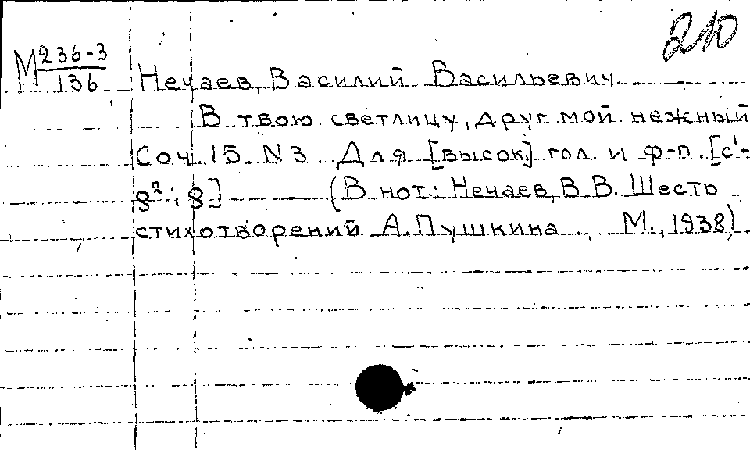 210
М 236-3
136
Нечаев, Василий Васильевич
В твою светлицу, друг мой нежный
Соч. 15. N 3. Для [высок] гол. и ф-п. [c¹-
g²; 8] (В нот.: Нечаев, В.В. Шесть
стихотворений А. Пушкина., М., 1938)